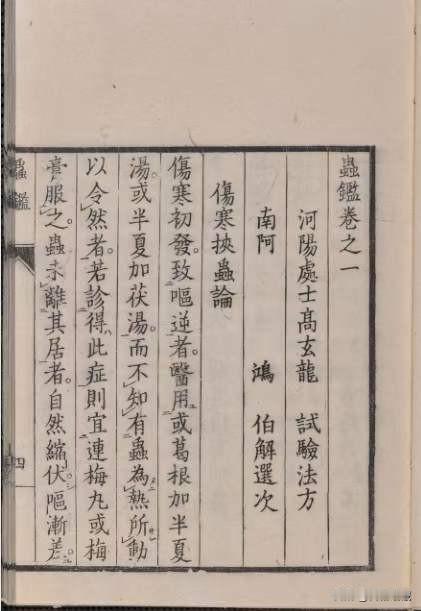 蟲鑑卷之一
河陽處士髙玄龍 試驗法方
南阿 鴻 伯解選次
傷寒挾蟲論
傷寒初發致嘔逆者醫用或葛根加半夏
湯或半夏加茯湯而不知有蟲為熱所動
以令然者若診得此症則宜連梅丸或梅
服之蟲未離其居者自然縮伏嘔漸差
蟲鑑
四